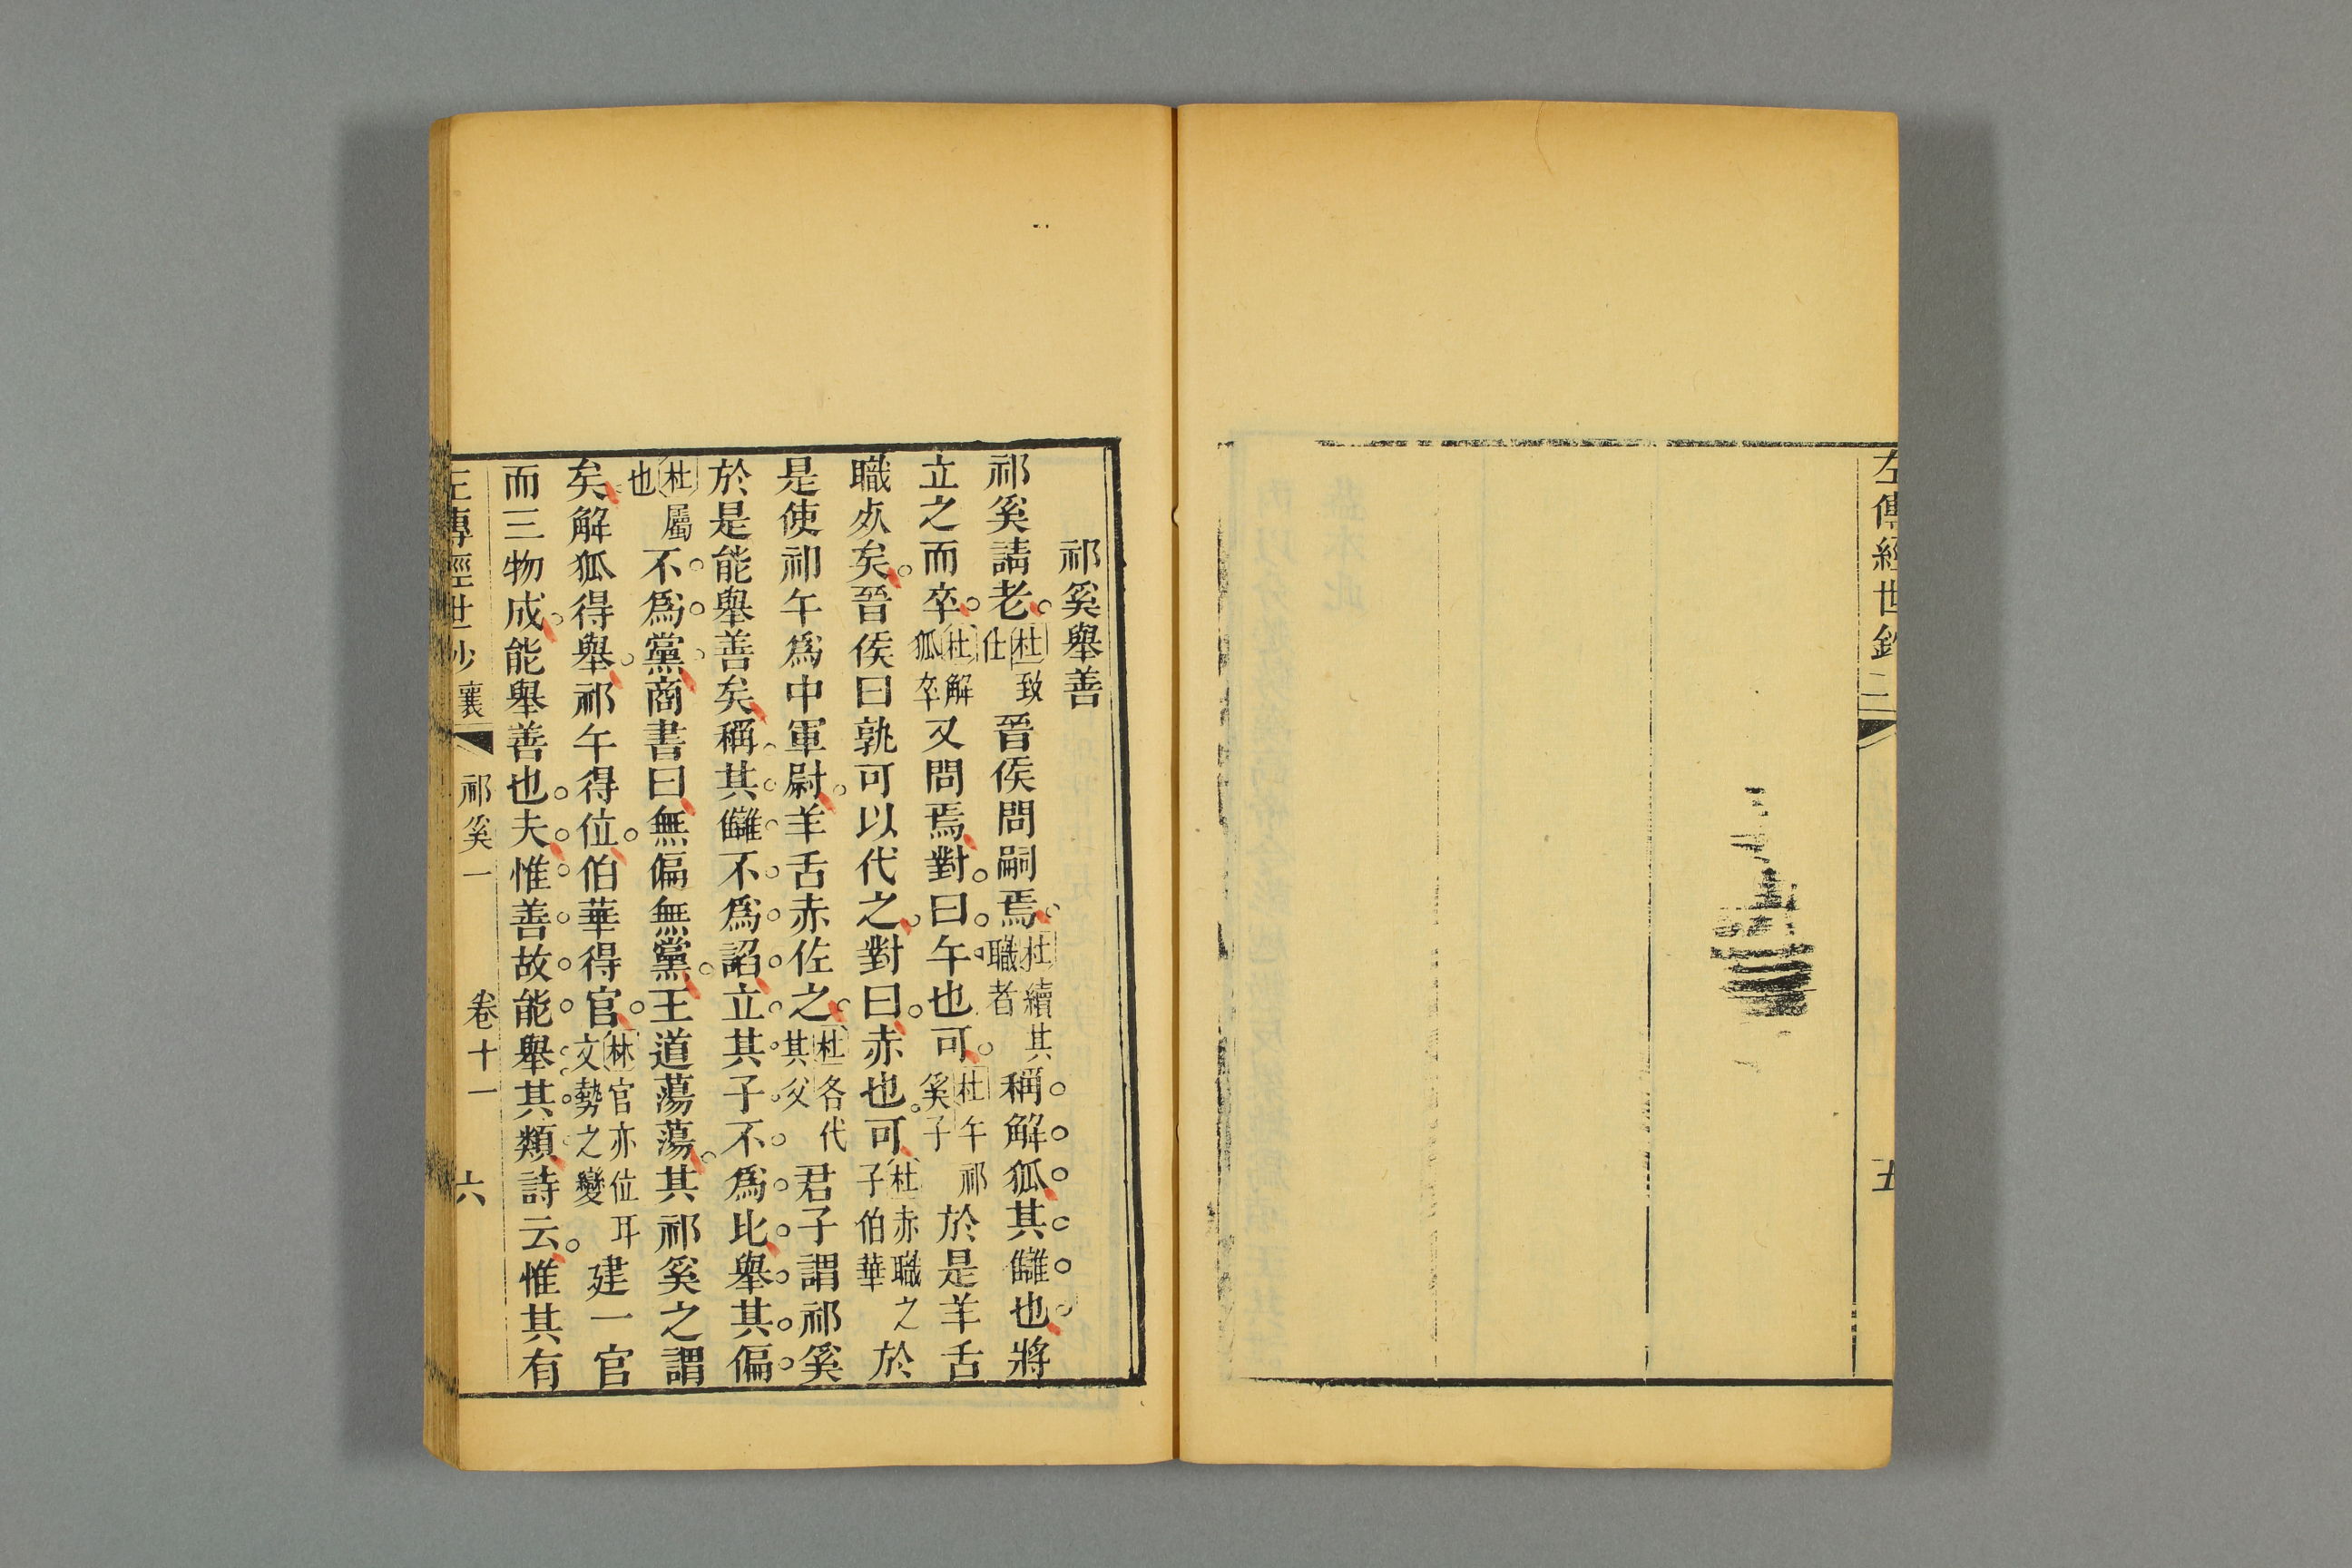 左傳經世鈔
五
祁奚舉善
祁奚請老杜致仕晉侯問嗣焉杜續其職者稱解狐其讎也將
立之而卒杜解狐卒又問焉對曰午也可杜午祁奚子於是羊舌
職歾矣晉侯曰孰可以代之對曰赤也可杜赤職之子伯華於
是使祁午爲中軍尉羊舌赤佐之杜各代其父君子謂祁奚
於是能舉善矣稱其讎不爲諂立其子不爲比舉其偏
杜屬也不爲黨商書曰無偏無黨王道蕩蕩其祁奚之謂
矣解狐得舉祁午得位伯華得官林官亦位耳文勢之變建一官
而三物成能舉善也夫惟善故能舉其類詩云惟其有
左傳經世鈔 襄 祁奚一 卷十一 六